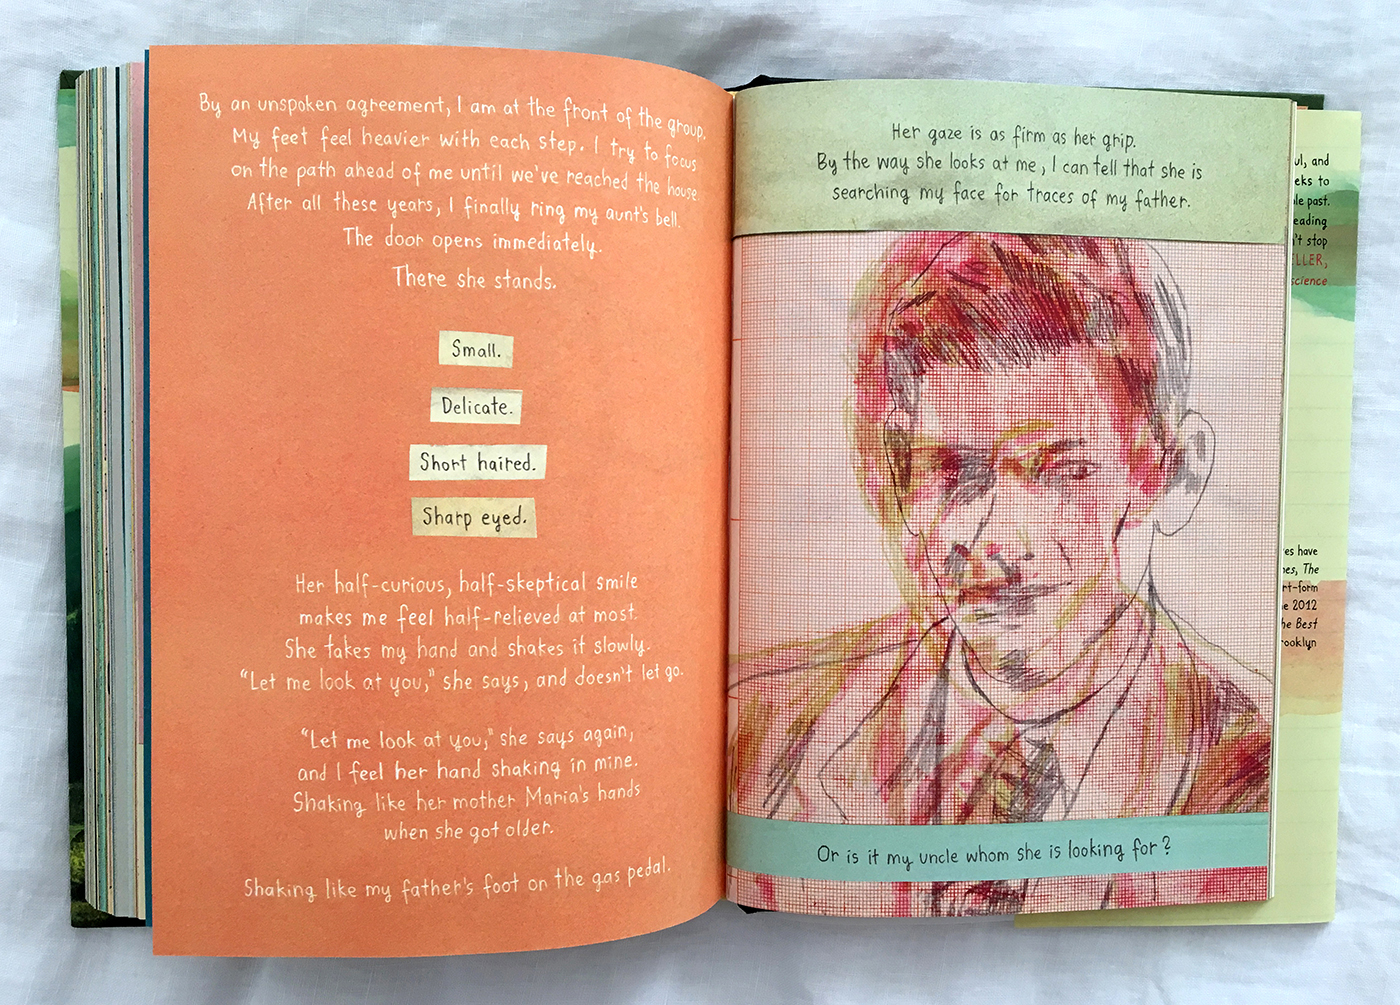 By an unspoken agreement, I am at the front of the group.
My feet feel heavier with each step. I try to focus
on the path ahead of me until we've reached the house.
After all these years, I finally ring my aunt's bell.
The door opens immediately.
There she stands.
Small.
Delicate.
Short haired.
Sharp eyed.
Her half-curious, half-skeptical smile
makes me feel half-relieved at most.
She takes my hand and shakes it slowly.
"Let me look at you," she says, and doesn't let go.
"Let me look at you," she says again,
and I feel her hand shaking in mine.
Shaking like her mother Maria's hands
when she got older.
Shaking like my father's foot on the gas pedal.
Her gaze is as firm as her grip.
By the way she looks at me, I can tell that she is
searching my face for traces of my father.
Or is it my uncle whom she is looking for?
and
to
past.
stop
science
have
The
2012
Best